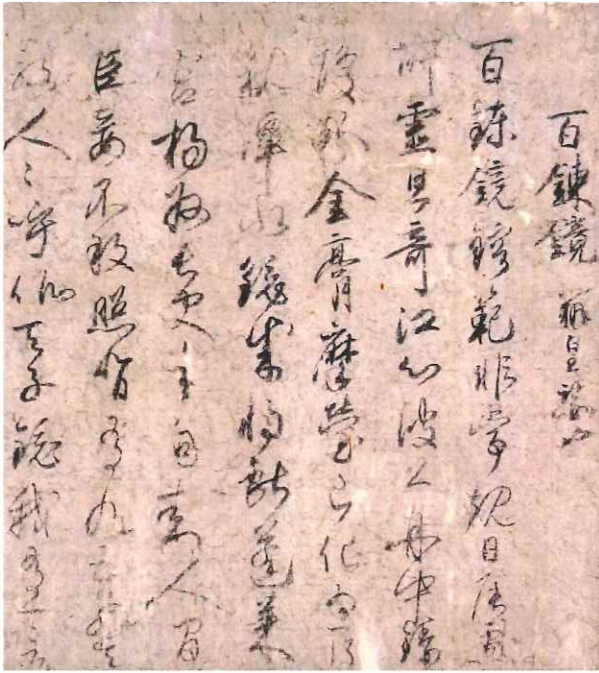 百鍊鏡 辨皇王鑒也
百鍊鏡鎔範非常規日辰處
所靈且奇江心波上舟中鑄
瓊粉金膏磨瑩已化為一片
秋潭水鏡成將獻蓬萊
宮揚州長吏手自封人間
臣妾不敢照背有九五飛天
龍人々呼為天子鏡我有一言